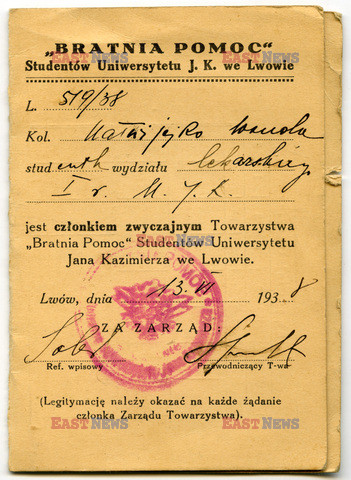 „BRATNIA POMOC“
EAST NEWS
Studentów Uniwersytetu J. K. we Lwowie.
L. 519/38
Kol.
student wydziału lekarskiej
I r. U. J. K.
jest członkiem zwyczajnym Towarzystwa
„Bratnia Pomoc“ Studentów Uniwersytetu
Jana Kazimierza we Lwowie.
EAST NEWS
Lwów, dnia 13. VI 1938
ZA ZARZĄD:
Ref. wpisowy Przewodniczący T-wa
(Legitymację należy okazać na każde żądanie
członka Zarządu Towarzystwa).
EAST NEWS